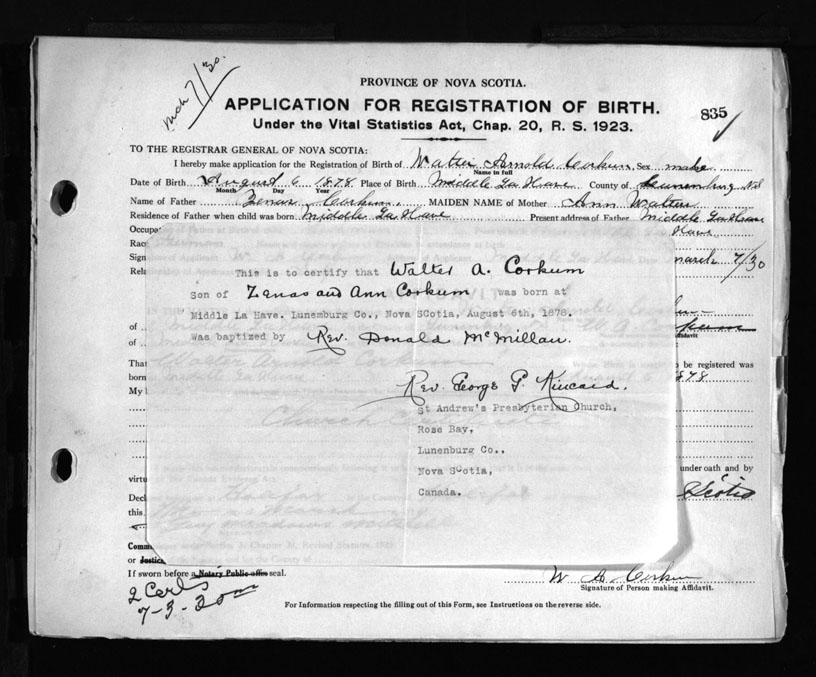 Mch 7/30.
PROVINCE OF NOVA SCOTIA.
APPLICATION FOR REGISTRATION OF BIRTH.
835
Under the Vital Statistics Act, Chap. 20, R. S. 1923.
TO THE REGISTRAR GENERAL OF NOVA SCOTIA:
I hereby make application for the Registration of Birth of Walter Arnold Corkum Sex male
Name in full
Date of Birth August 6 1878 Place of Birth Middle La Have County of Lunenburg N.S
Month Day Year
Name of Father Zenas Corkum. MAIDEN NAME of Mother Ann Walters
Residence of Father when child was born Middle La Have Present address of Father Middle La Have
Occupa
Rac
Sign March 7/30
Rela
This is to certify that Walter A. Corkum
Son of Zenas and Ann Corkum was born at
Middle La Have. Lunemburg Co., Nova SCotia, August 6th, 1878.
was baptized by Rev. Donald McMillan.
of
of
That be registered was
born 1878
My
Rev. George P. Kincaid.
St Andrew's Presbyterian Church,
Rose Bay,
Lunenburg Co.,
Nova Scotia,
Canada.
under oath and by
virtu
Decl Scotia
this
Comm
or Justice
If sworn before a Notary Public affix seal.
2 Certs
7-3-30
W A Corkum
Signature of Person making Affidavit.
For Information respecting the filling out of this Form, see Instructions on the reverse side.